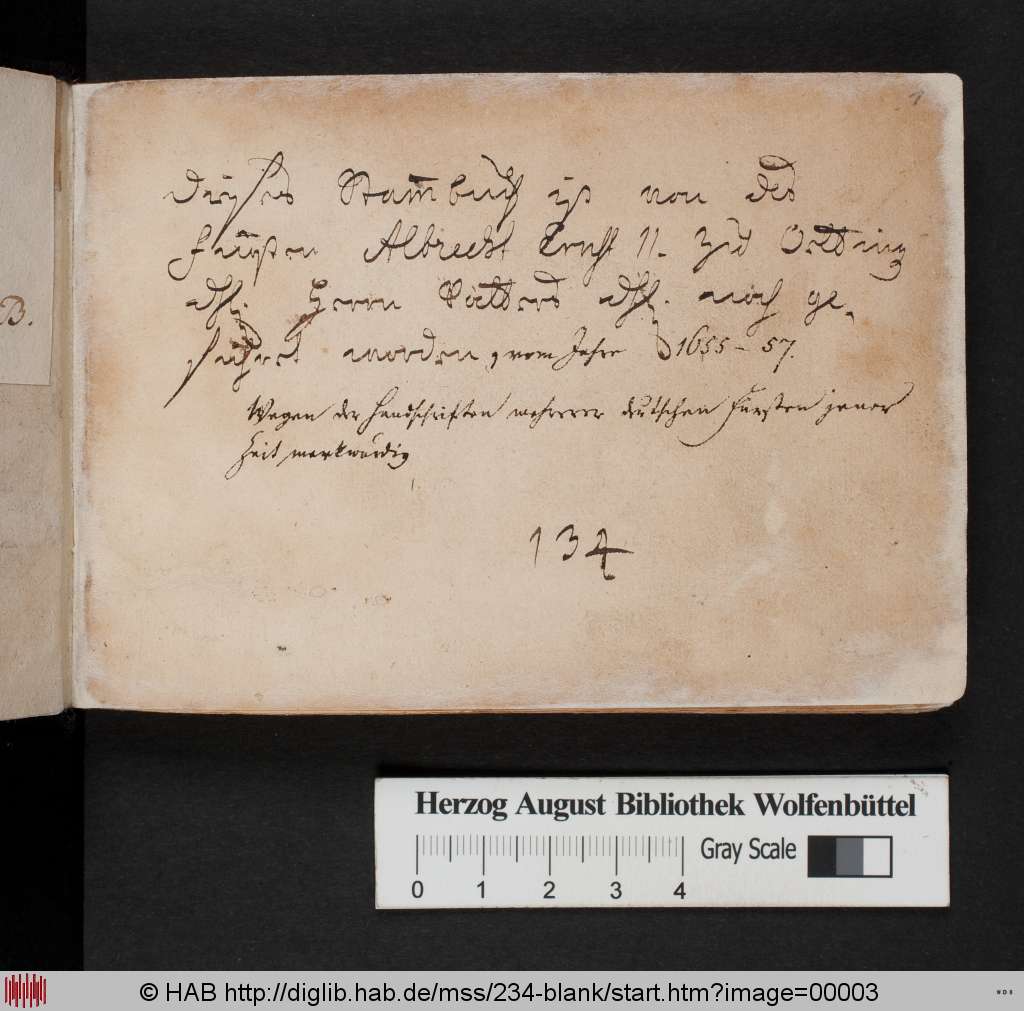 1
B.
Dieses Stambuch ist von des
Fürsten Albrecht Ernst II. zu Oetting
Herrn Vatters noch ge-
führet worden, vom Jahre 1655 - 57.
Wegen der Handschriften mehrerer deutschen Fürsten jener
Zeit merkwürdig
134
Herzog August Bibliothek Wolfenbüttel
Gray Scale
0 1 2 3 4
© HAB http://diglib.hab.de/mss/234-blank/start.htm?image=00003